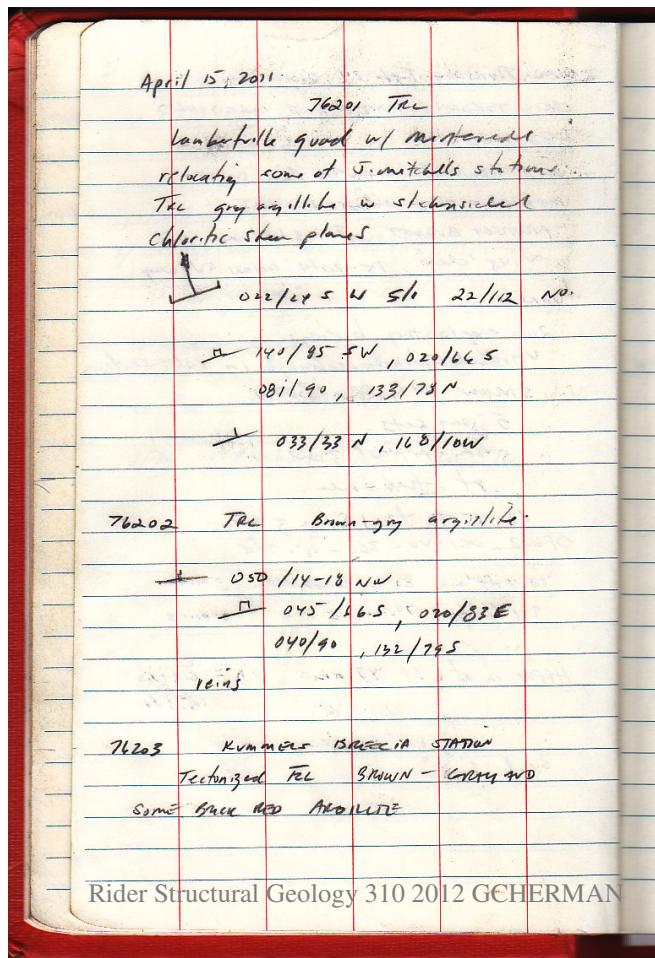 April 15, 2011
76201 TRL
Lambertville quad w/
relocating some of J. mitchells stations
TRL gray argillite w slickensided
Chloritic shear planes
022/24 S W S/c 22/112 No.
140/85 SW, 020/66 S
081/90, 133/78 N
033/33 N, 168/10W
76202 TRL Brown-gry argillite
050/14-18 NW
045/66 S, 020/83 E
040/90, 132/79 S
veins
76203 KUMMELS BRECCIA STATION
Tectonized TRL BROWN-GRAY AND
SOME BRICK RED ARGILLITE
Rider Structural Geology 310 2012 GCHERMAN